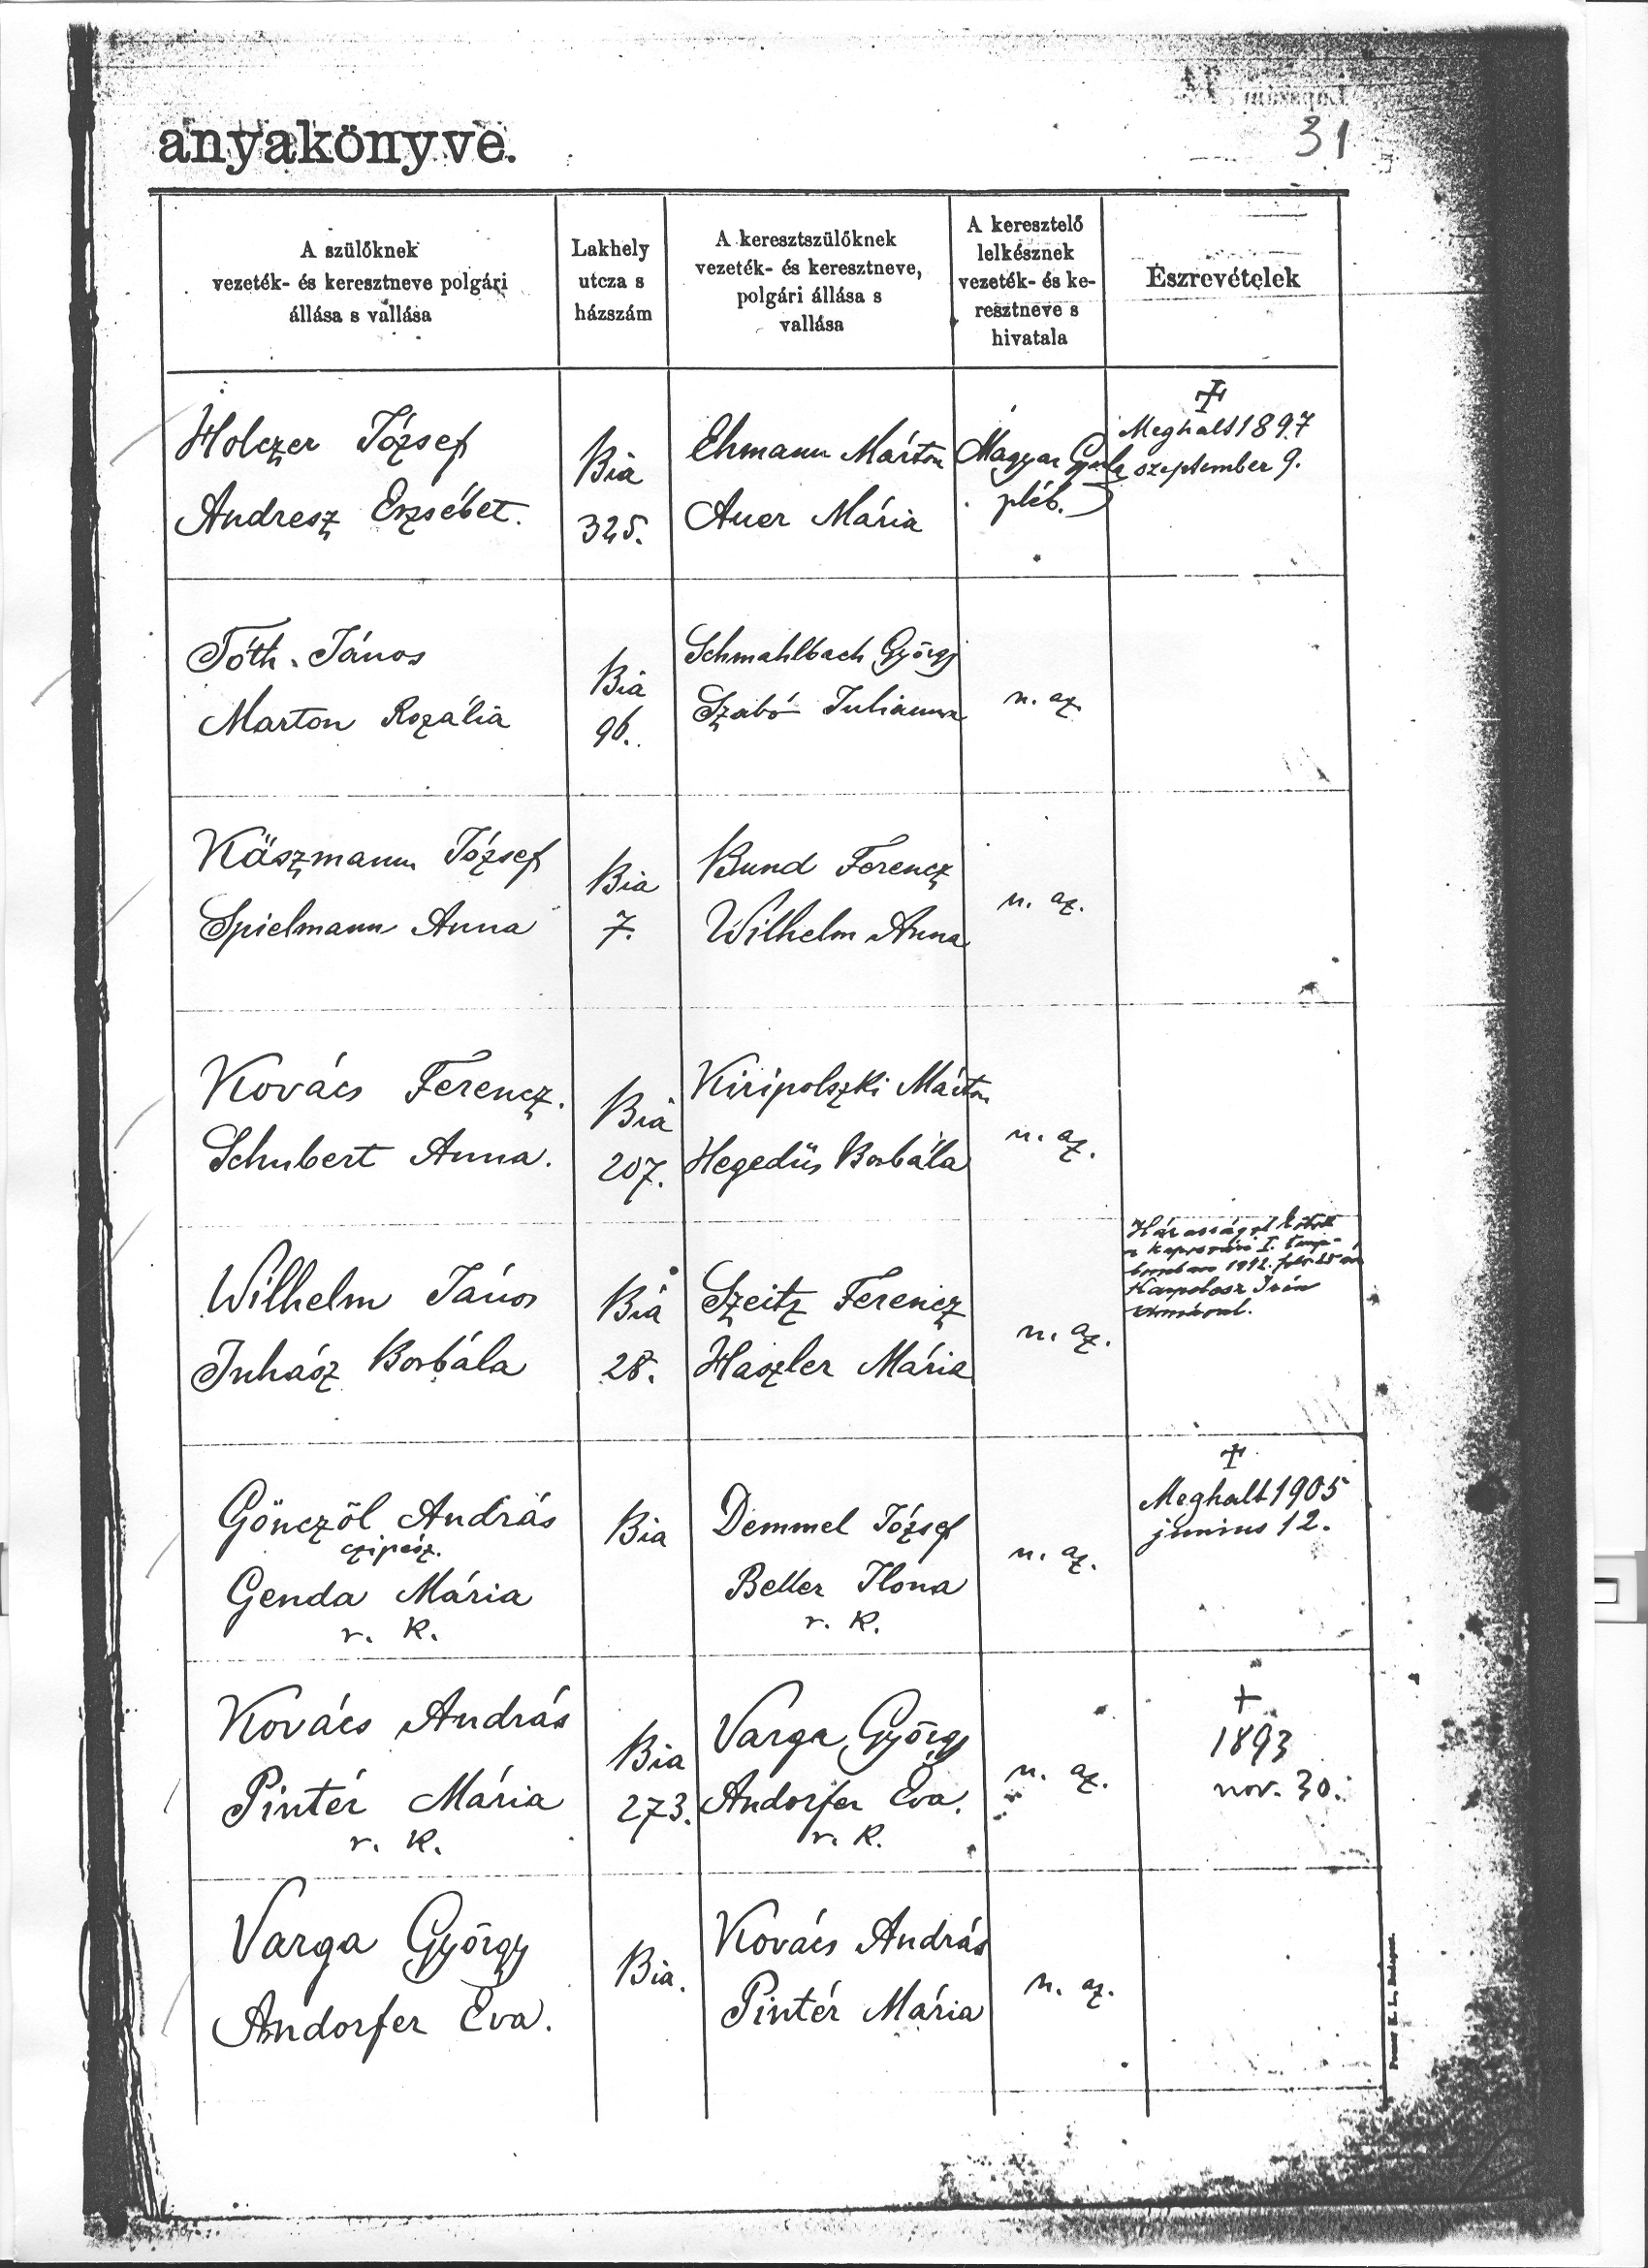 31
anyakönyve.
A szülőknek
vezeték- és keresztneve polgári
állása s vallása
Lakhely
utcza s
házszám
A keresztszülőknek
vezeték- és keresztneve,
polgári állása s
vallása
A keresztelő
lelkésznek
vezeték- és ke-
resztneve s
hivatala
Észrevételek
Holczer József
Andresz Erzsébet.
Bia
325.
Ehmann Márton
Auer Mária
Magyar Gyula
pléb.
Meghalt 1897
szeptember 9.
Tóth János
Marton Rozália
Bia
96.
Schmahlbach György
Szabó Julianna
u. az
Käszmann József
Spielmann Anna
Bia
7.
Bund Ferencz
Wilhelm Anna
u. az.
Kovács Ferencz.
Schubert Anna.
Bia
207.
Kiripolszki Márton
Hegedüs Borbála
u. az.
Wilhelm János
Juhász Borbála
Bia
28.
Szeitz Ferencz
Haszler Mária
u. az.
Házasságot kötött
a kaposvári I. temp-
lomban 1942. febr.
Irén
Gönczöl András
czipész.
Genda Mária
r. k.
Bia
Demmel József
Beller Ilona
r. k.
u. az.
Meghalt 1905
junius 12.
Kovács András
Pintér Mária
r. k.
Bia
273.
Varga György
Andorfer Éva.
r. k.
u. az.
+
1893
nov. 30.
Varga György
Andorfer Éva.
Bia.
Kovács András
Pintér Mária
u. az.